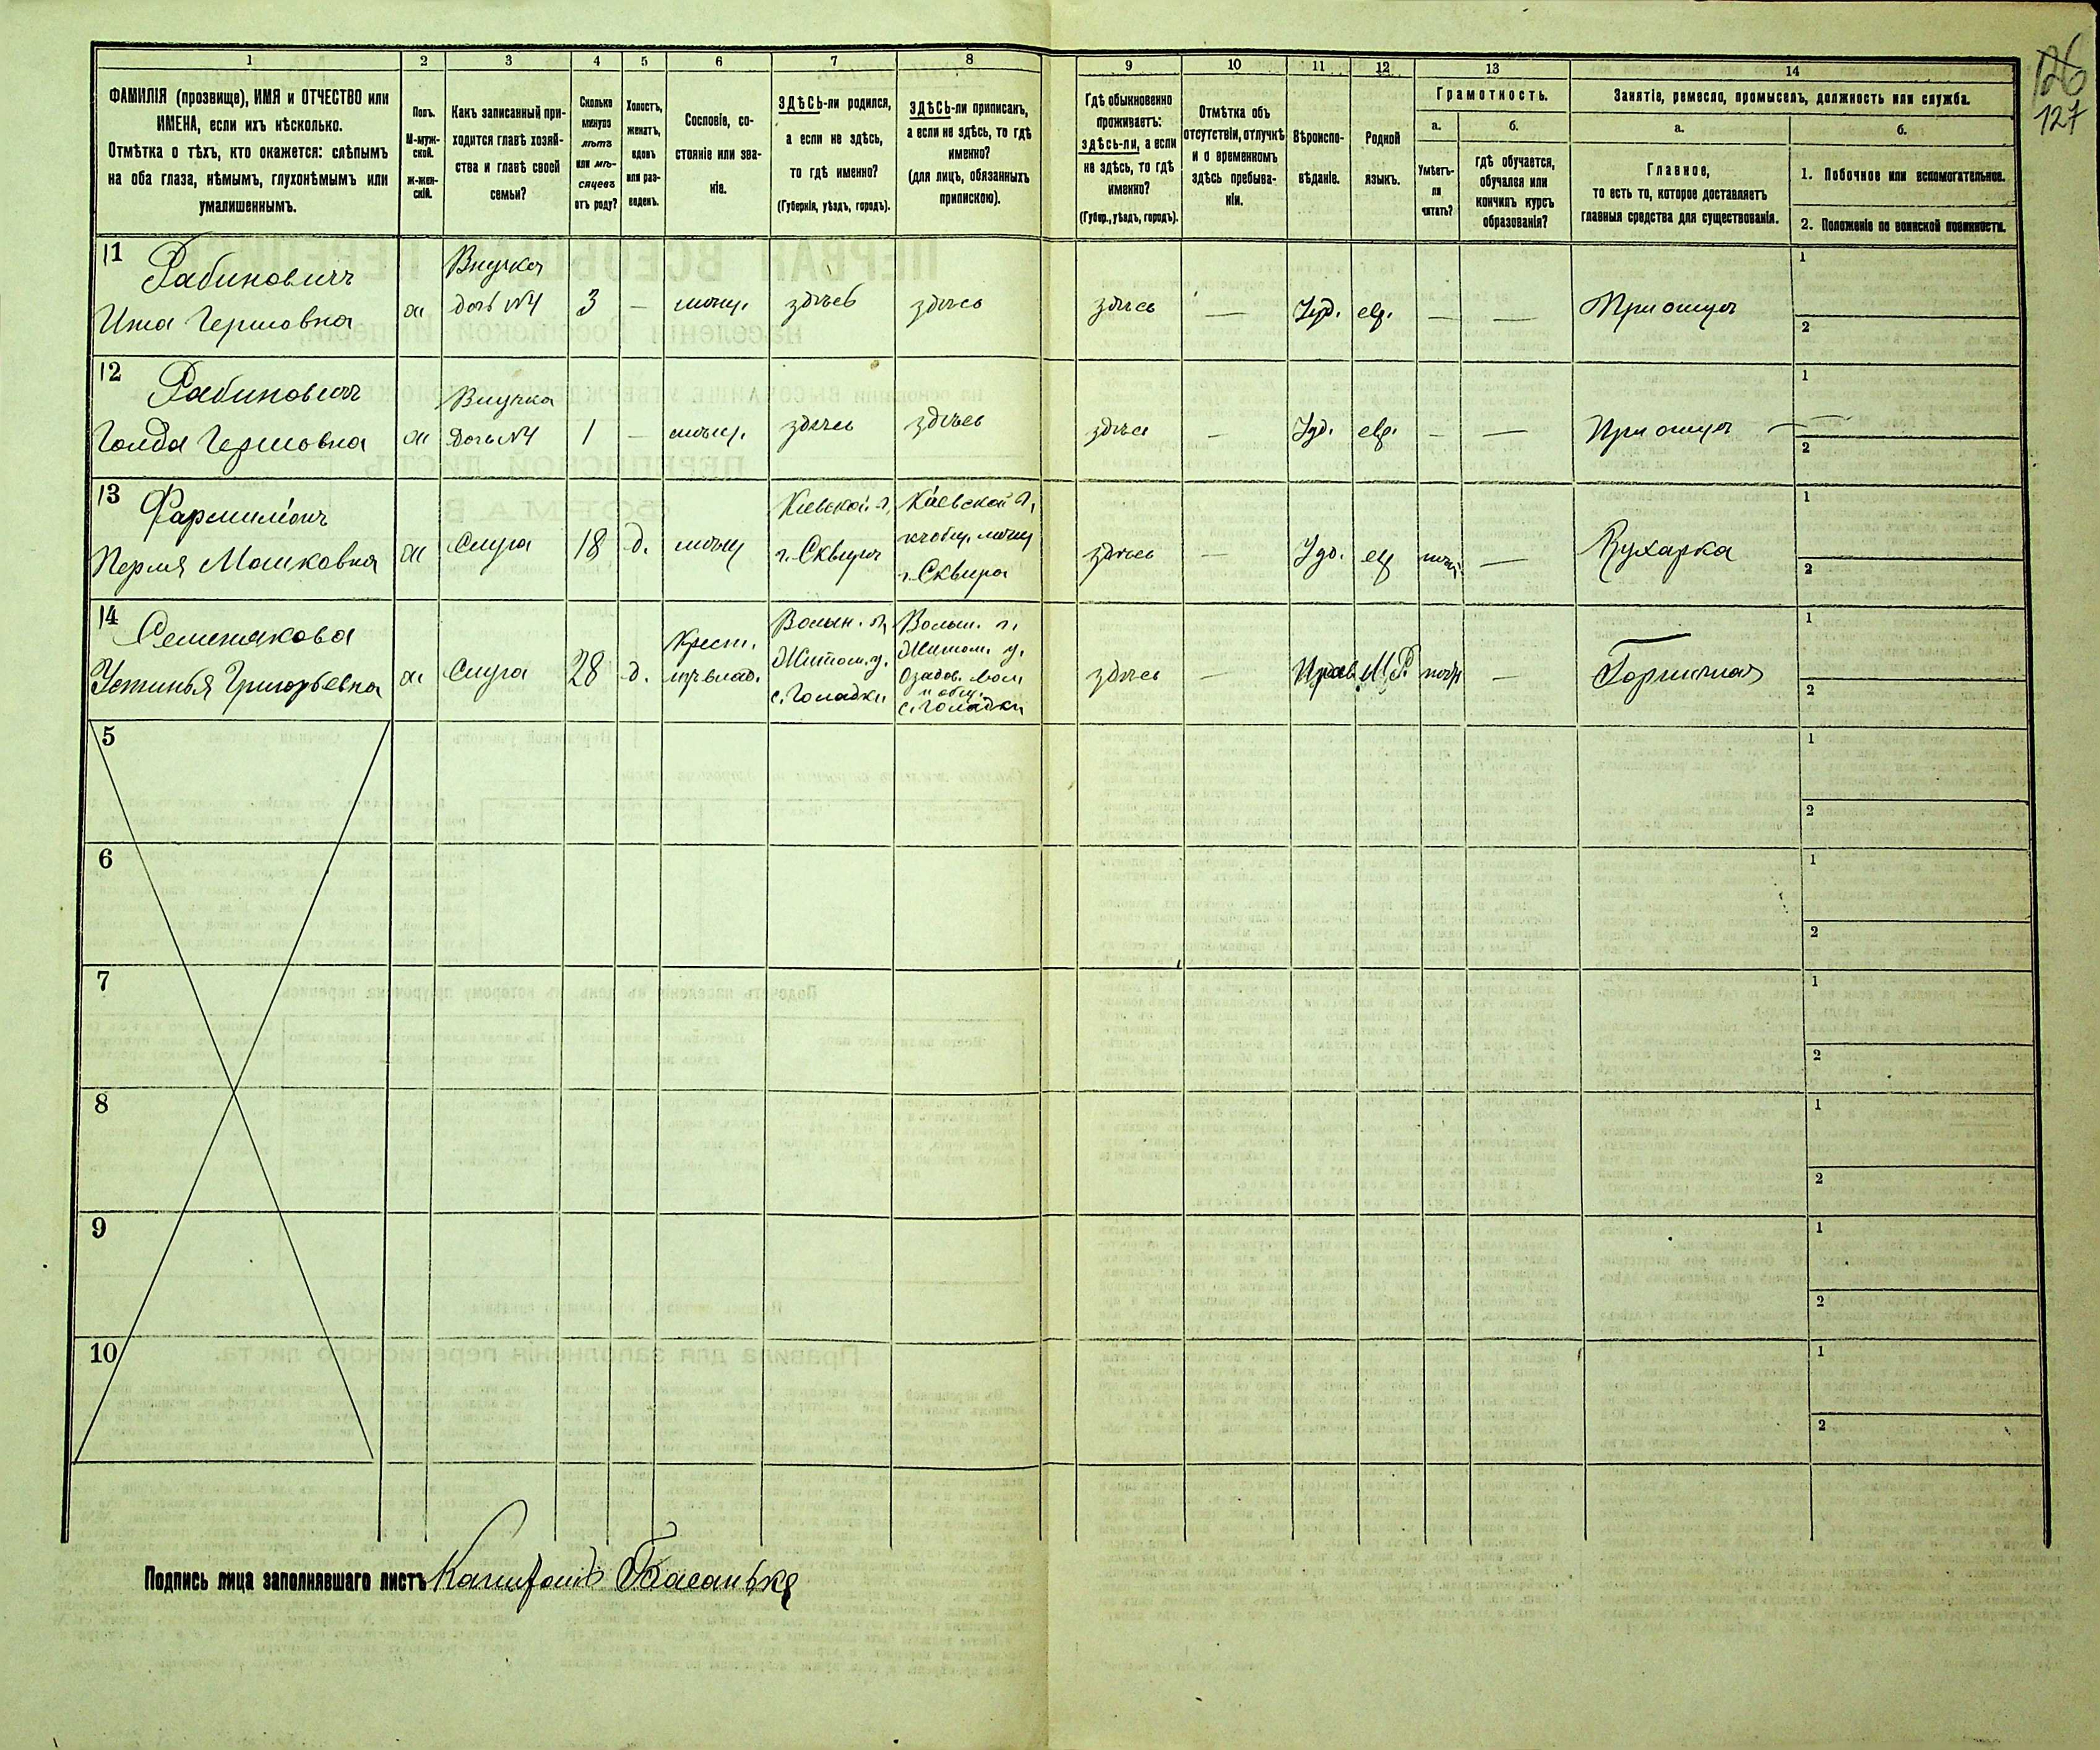 126
127
1 2 3 4 5 6 7 8 9 10 11 12 13 14
ФАМИЛІЯ (прозвище), ИМЯ и ОТЧЕСТВО или
ИМЕНА, если ихъ нѣсколько.
Отмѣтка о тѣхъ, кто окажется: слѣпымъ
на оба глаза, нѣмымъ, глухонѣмымъ или
умалишеннымъ.
Полъ.
М-муж-
ской.
ж-жен-
скій.
Какъ записанный при-
ходится главѣ хозяй-
ства и главѣ своей
семьи?
Сколько
минуло
лѣтъ
или мѣ-
сяцевъ
отъ роду?
Холостъ,
женатъ,
вдовъ
или раз-
веденъ.
Сословіе, со-
стояніе или зва-
ніе.
ЗДѢСЬ-ли родился,
а если не здѣсь,
то гдѣ именно?
(Губернія, уѣздъ, городъ).
ЗДѢСЬ-ли приписанъ,
а если не здѣсь, то гдѣ
именно?
(для лицъ, обязанныхъ
припискою).
Гдѣ обыкновенно
проживаетъ:
здѣсь-ли, а если
не здѣсь, то гдѣ
именно?
(Губер., уѣздъ, городъ).
Отмѣтка объ
отсутствіи, отлучкѣ
и о временномъ
здѣсь пребыва-
ніи.
Вѣроиспо-
вѣданіе.
Родной
языкъ.
Грамотность.
а.
Умѣетъ-
ли
читать?
б.
гдѣ обучается,
обучался или
кончилъ курсъ
образованія?
Занятіе, ремесло, промыселъ, должность или служба.
а.
Главное,
то есть то, которое доставляетъ
главныя средства для существованія.
б.
1. Побочное или вспомогательное.
2. Положеніе по воинской повинности.
11 Рабиновичъ
Гершовна
ж
Внучка
дочь №4
3
—
мѣщ.
здѣсь
здѣсь
здѣсь
—
Іуд.
евр.
—
—
При отцѣ
1
2
12 Рабиновичъ
Голда Гершовна
ж
Внучка
дочь №4
1
—
мѣщ.
здѣсь
здѣсь
здѣсь
—
Іуд.
евр.
—
—
При отцѣ —
1
—
2
13
Перля Мошковна
ж
Слуга
18
д.
мѣщ
Кіевской г.
г. Сквиры
Кіевской г.
г. Сквира
здѣсь
—
Іуд.
евр
—
Кухарка
1
2
14 Семенякова
Устинья Григорьевна
ж
Слуга
28
д.
Крест.
Волын. г.
Житом. у.
с. Голадки
Волын. г.
Житом. у.
вол
и общ.
с. Голадки
здѣсь
—
Прав
М. Р.
—
Горничная
1
2
5
1
2
6
1
2
7
1
2
8
1
2
9
1
2
10
1
2
Подпись лица заполнявшаго листъ